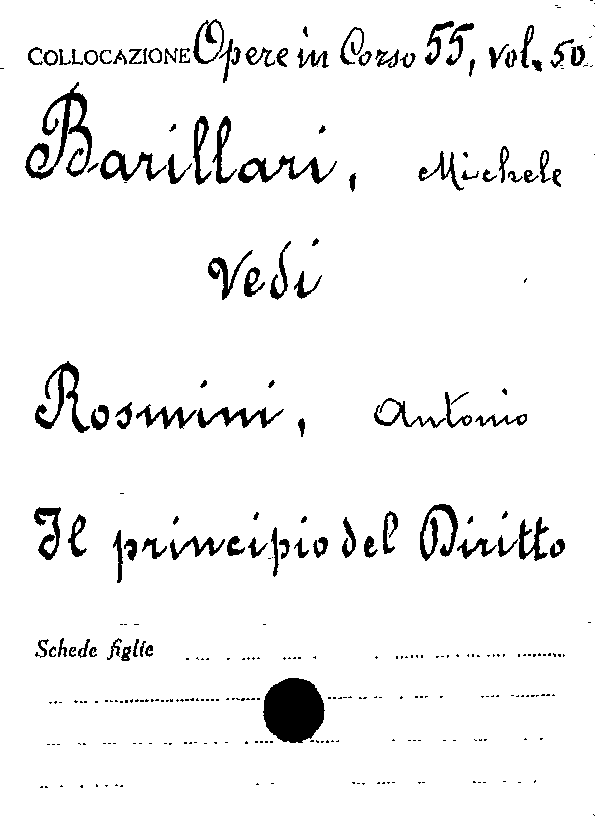 COLLOCAZIONE Opere in Corso 55, vol. 50
Barillari, Michele
Vedi
Rosmini, Antonio
Il principio del Diritto
Schede figlie